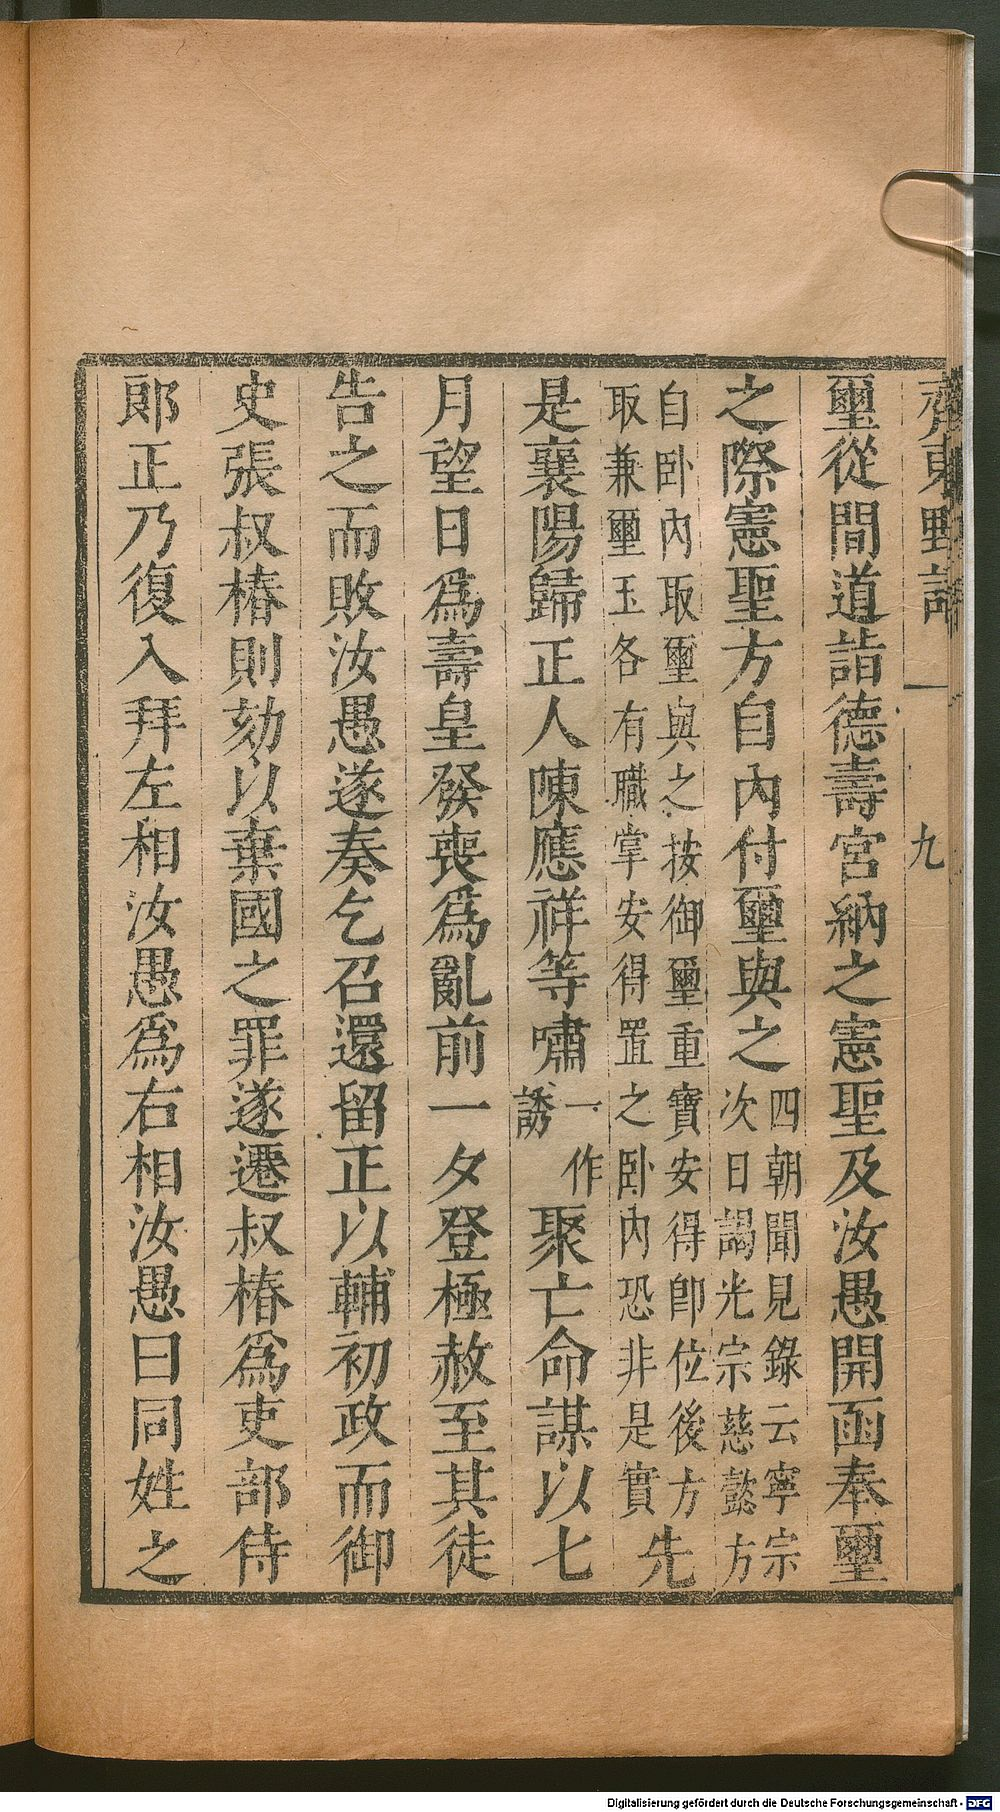 齊東野語　一　九
璽從間道詣德壽宮納之憲聖及汝愚開函奉璽
之際憲聖方自內付璽與之四朝聞見錄云寧宗
次日謁光宗慈懿方
自卧內取璽與之按御璽重寶安得卽位後方
取兼璽玉各有職掌安得置之卧內恐非是實
先
是襄陽歸正人陳應祥等嘯一作誘聚亡命謀以七
月望日爲壽皇發喪爲亂前一夕登極赦至其徒
告之而敗汝愚遂奏乞召還留正以輔初政而御
史張叔椿則劾以棄國之罪遂遷叔椿爲吏部侍
郞正乃復入拜左相汝愚爲右相汝愚曰同姓之
Digitalisierung gefördert durch die Deutsche Forschungsgemeinschaft - DFG